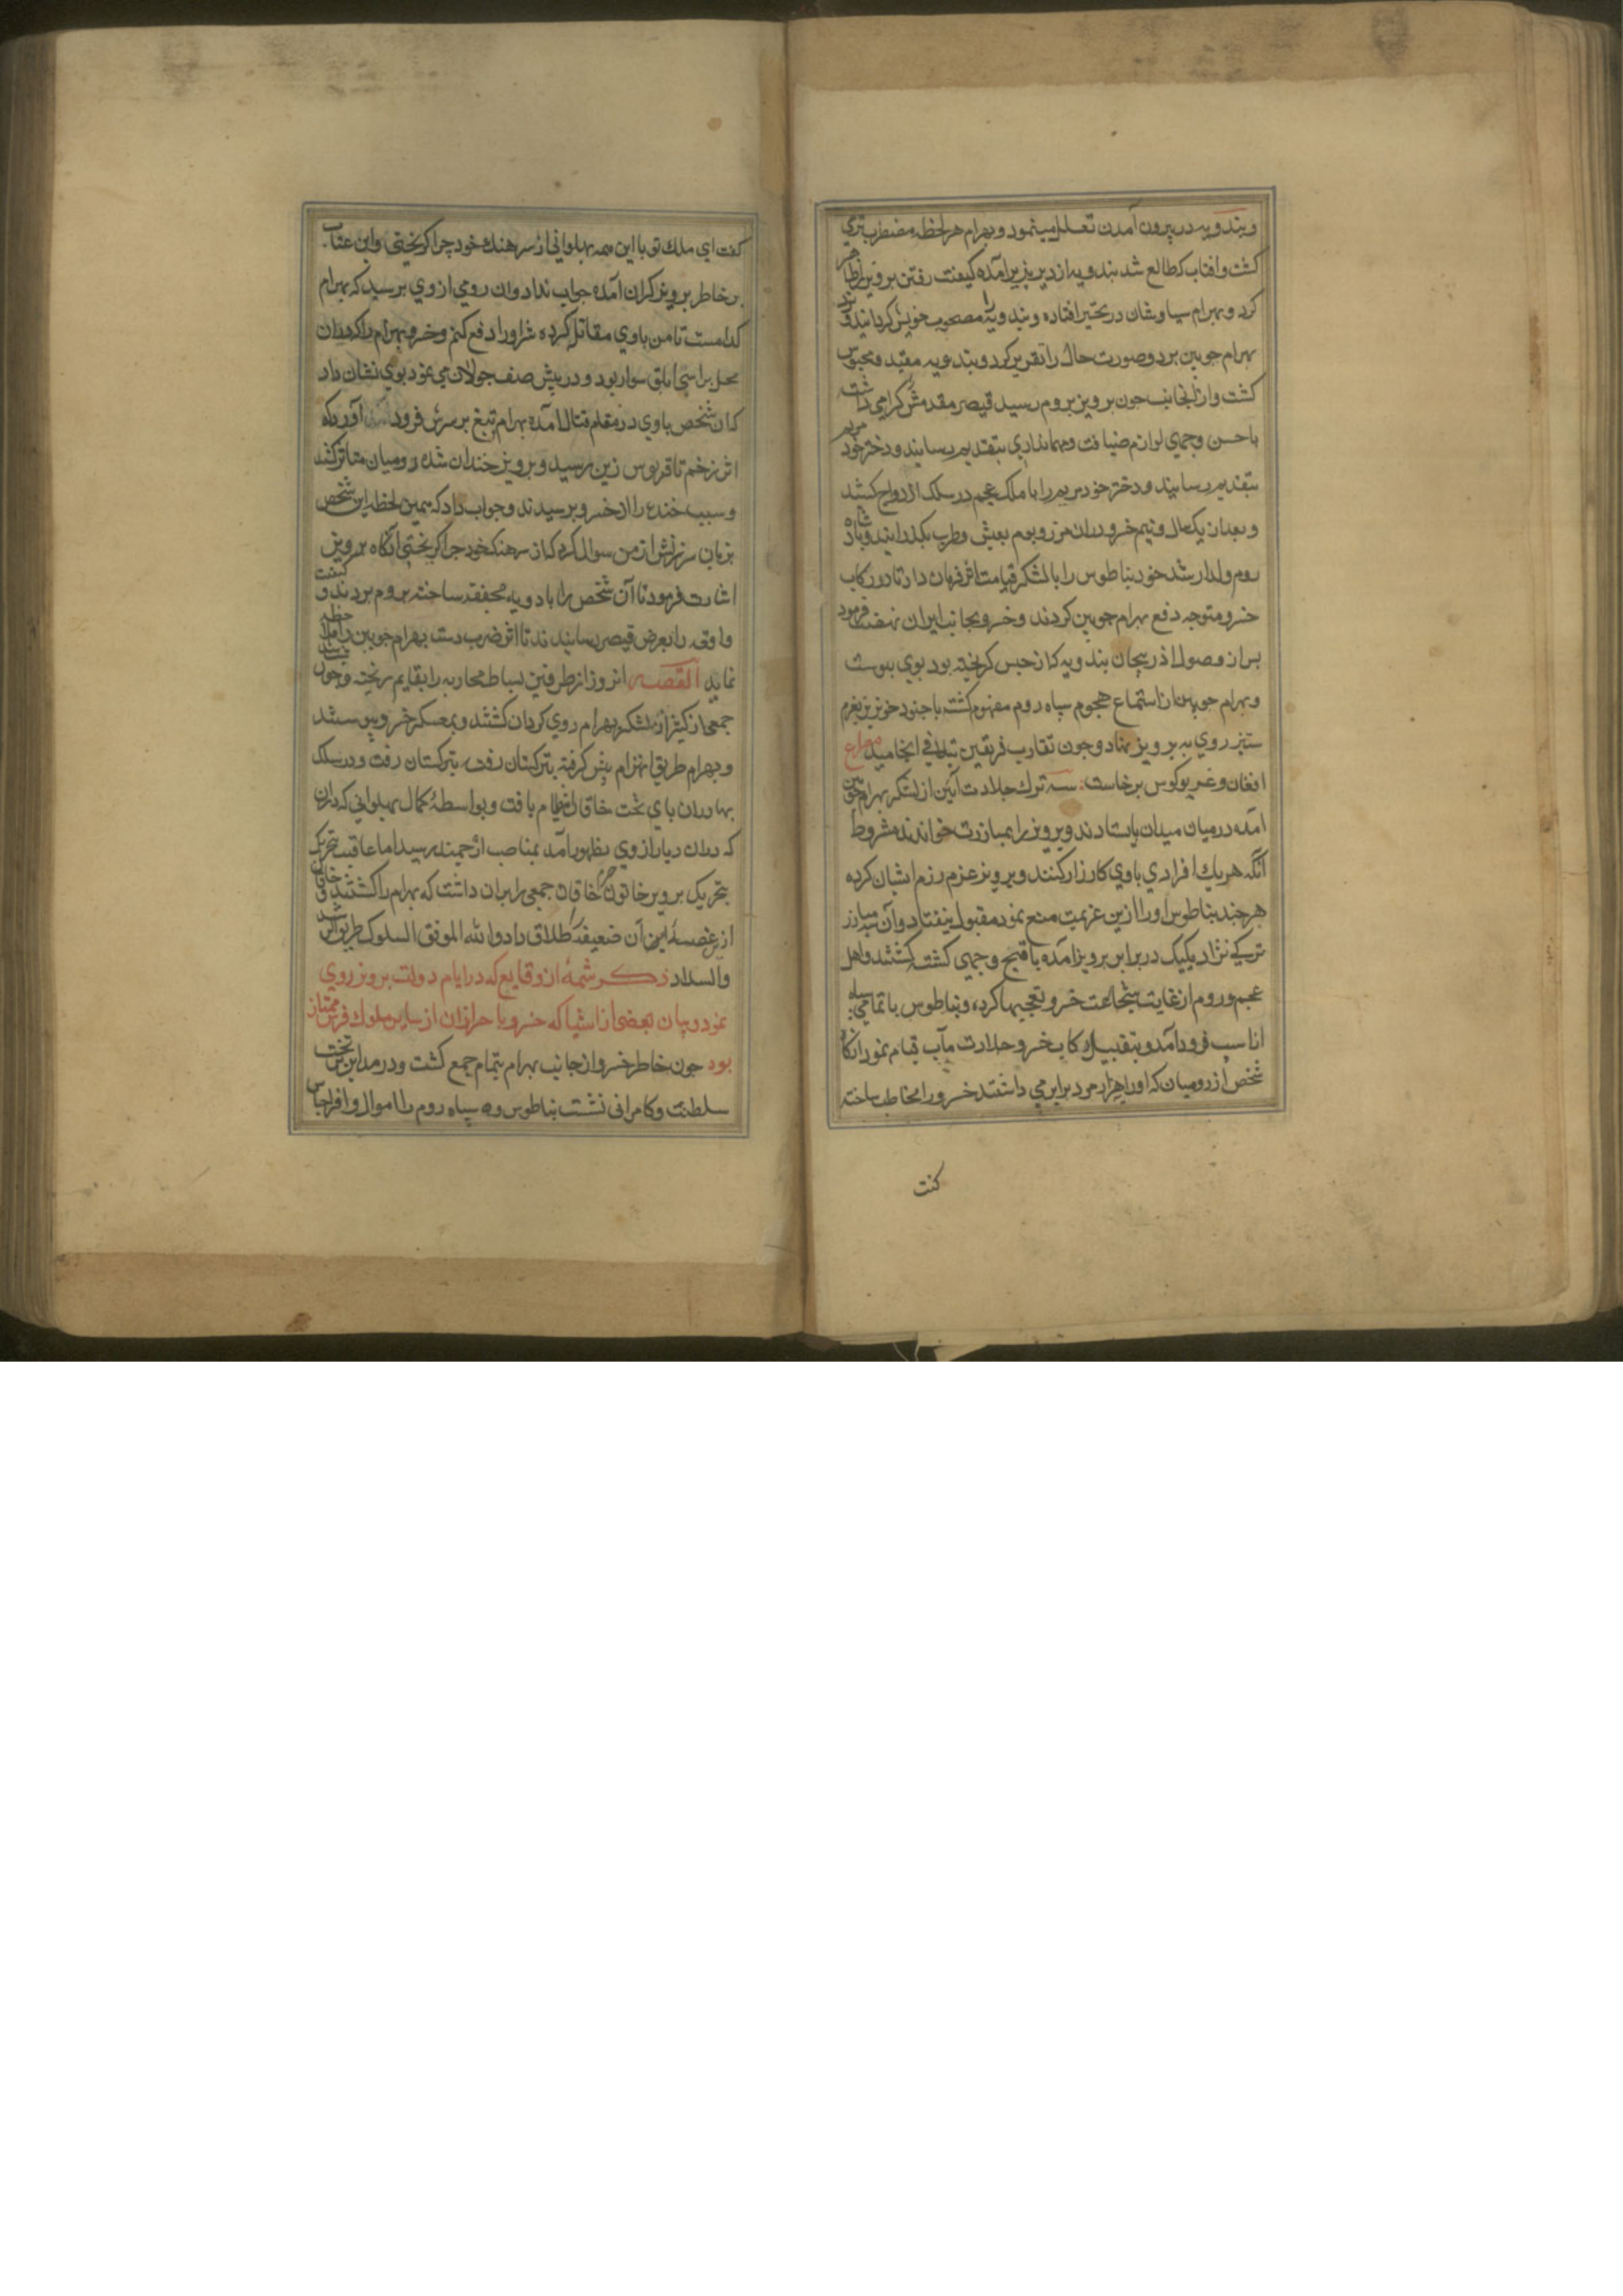 وبندویه در بیرون آمدن تعلل مینمود وبهرام هر لحظه مضطرب تری
کشت وافتاب که طالع شد بندویه از دیر بزیر آمده کیفیت رفتن برویز اظاهر
کرد وبهرام سیاوشان در تحیر افتاده وبندویه را مصحوب خویش کردانید ونزد
بهرام جوبین برد وصورت حال را تقریر کرد وبندویه مقید ومحبوس
کشت وازانجانب جون برویز بروم رسید قیصر مقدمش کرامی داشت
باحسن وجهی لوازم ضیافت ومهمانداری بتقدیم رسانید ودختر خود مریم
بتقدیم رسانید ودختر خود مریم را با ملک عجم در سلک ازدواج کشید
وبعد از یک سال ونیم خسرو دران مرز وبوم بعیش وطرب بکذرانید وبادشاه
روم ولد ارشد خود بناطوس را با لشکر قیامت اثر فرمان داد تا در رکاب
خسرو متوجه دفع بهرام جوبین کردند وخسرو بجانب ایران نهضت فرمود
بس از وصول اذربیجان بندویه که از حبس کریخته بود بوی بیوست
وبهرام جوبین از استماع هجوم سپاه روم مفهوم کشته با جنود خونریز بعزم
ستیز روی به برویز نهاد وجون تقارب فریقین بتلاقی انجامید مصراع
افغان وغریو کوس برخاست سه ترک جلادت آئین از لشکر بهرام جوبین
آمده در میان میدان بایستادند وبرویز را بمبارزت خواندند مشروط
آنکه هر یک افرادی باوی کارزار کنند وبرویز عزم رزم ایشان کرده
هر جند بناطوس اورا ازین عزیمت منع نمود مقبول نیفتاد وآن سه مبارز
ترکی نژاد یکیک در برابر برویز آمده باقبح وجهی کشته کشتند واهل
عجم وروم از غایت شجاعت خسرو تعجبها کرده وبناطوس با تمامی سپاه
از اسب فرود آمد وبتقبیل رکاب خسرو جلادت مآب قیام نمود آنکاه
شخص از رومیان که اورا بهزار مرد برابر می داشتند خسرو را مخاطب ساخته
کفت
کفت ای ملک تو با این همه بهلوانی از سرهنک خود چرا کریختی واین عتاب
بر خاطر برویز کران آمده جواب نداد وآن رومی از وی برسید که بهرام
کدامست تا من باوی مقاتله کرده شر اورا دفع کنم وخسرو بهرام را که دران
محل بر اسبی ابلق سوار بود ودر پیش صف جولان می نمود بوی نشان داد
کان شخص باوی در مقام قتال آمده بهرام تیغ بر سرش فرود آورد که
اثر زخم تا قربوس زین رسید وبرویز خندان شده رومیان متاثر کشتند
وسبب خنده را از خسرو برسیدند وجواب داد که همین لحظه این شخص
بزبان سرزنش از من سوال کرد که از سرهنک خود جرا کریختی آنکاه برویز
اشارت فرمود تا آن شخص را بادویه محفقه ساخته بروم بردند وکیفیت
واقعه را بعرض قیصر رسانیدند تا اثر ضرب دست بهرام جوبین را ملاحظه
نماید القصه انروز از طرفین بساط محاربه را بقایم ریخته وجون
جمعی از کثیر از لشکر بهرام روی کردان کشتند وبمعسکر خسرو پیوستند
وبهرام طریق انهزام پیش کرفته بترکستان رفت بترکستان رفت ودر سلک
بهادران پای تخت خاقان انتظام یافت وبواسطهٔ کمال بهلوانی که دران
که دران دیار از وی بظهور آمد بمناصب ارجمند رسید اما عاقبت بتحریک
بتحریک برویز خاتون خاقان جمعی را بران داشت که بهرام را کشتند وخاقان
از غصهٔ این آن ضعیفه را طلاق داد والله الموفق السلوک طریق الرشد
والسداد ذکر شمهٔ از وقایع که در ایام دولت برویز روی
نمود وبیان بعضی از اشیا که خسرو با حراز ان از سایر ملوک فرس ممتاز
بود جون خاطر خسرو از جانب بهرام بتمام جمع کشت ودر مداین بر تخت
سلطنت وکامرانی نشست بناطوس وسپاه روم را اموال وافر اجناس